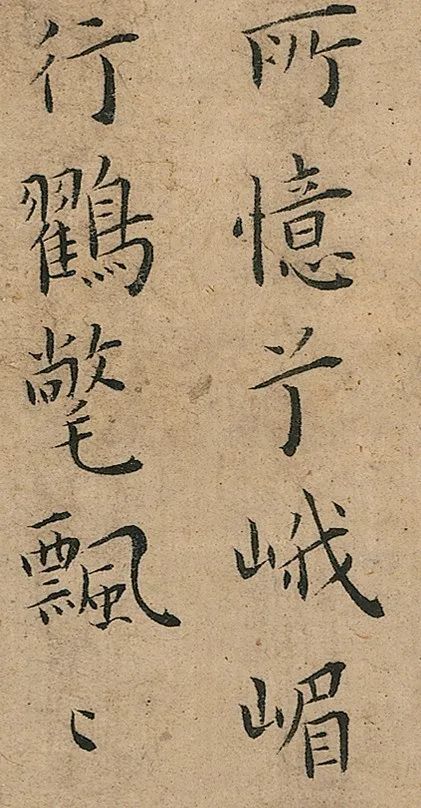 所憶兮峨嵋
行鶴氅飄〻